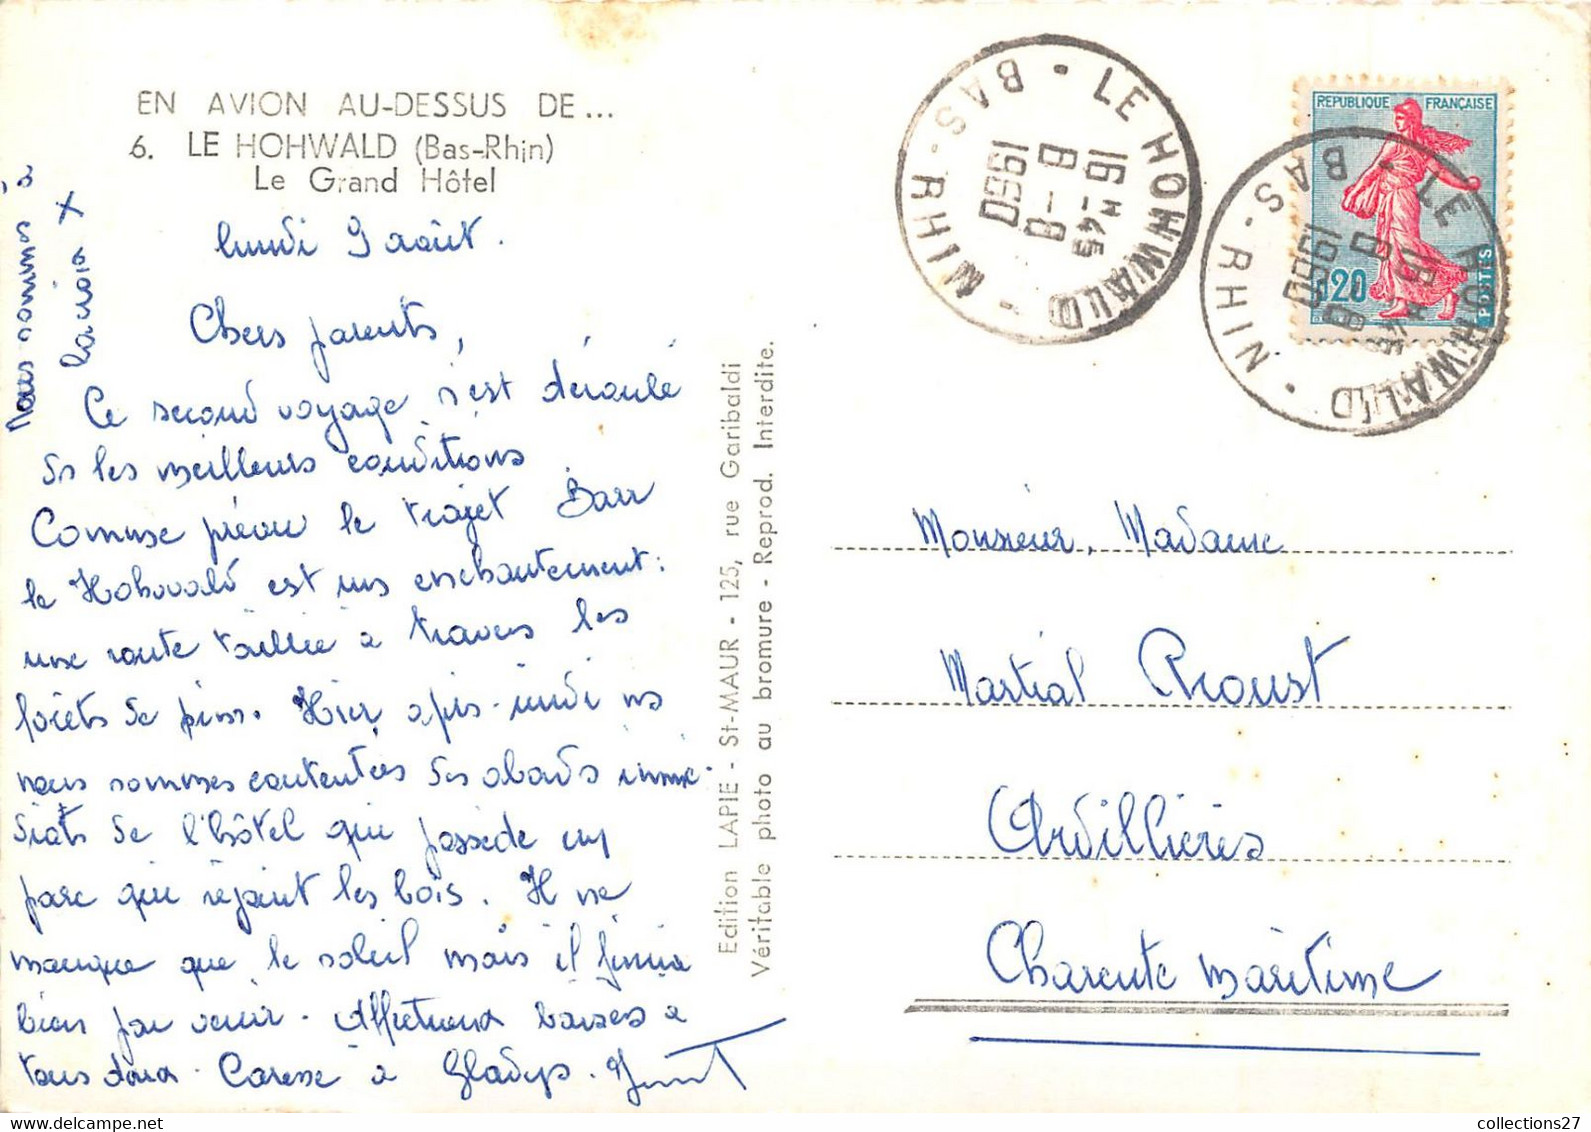 EN AVION AU-DESSUS DE...
6. LE HOHWALD (Bas-Rhin)
Le Grand Hôtel
lundi 9 août.
Chers parents,
Ce second voyage s'est déroulé
ds les meilleurs conditions
Comme prévu le trajet Barr
le Hohwald est un enchantement:
une route taillée à travers les
forêts de pins. Hier après-midi ns
nous sommes contentées des abords immé-
diats de l'hôtel qui possède un
parc qui rejoint les bois. Il ne
manque que le soleil mais il finira
bien par venir. Affectueux baisers à
tous deux. Caresse à Gladys.
Nous sommes à
la croix X
Edition LAPIE - St-MAUR - 125, rue Garibaldi
Véritable photo au bromure - Reprod. Interdite.
LE HOHWALD - BAS-RHIN
16H45
8-8
1960
REPUBLIQUE FRANÇAISE
0,20
POSTES
LE HOHWALD - BAS-RHIN
16H45
8-8
1960
Monsieur, Madame
Martial Proust
Ardillières
Charente maritime
collections27